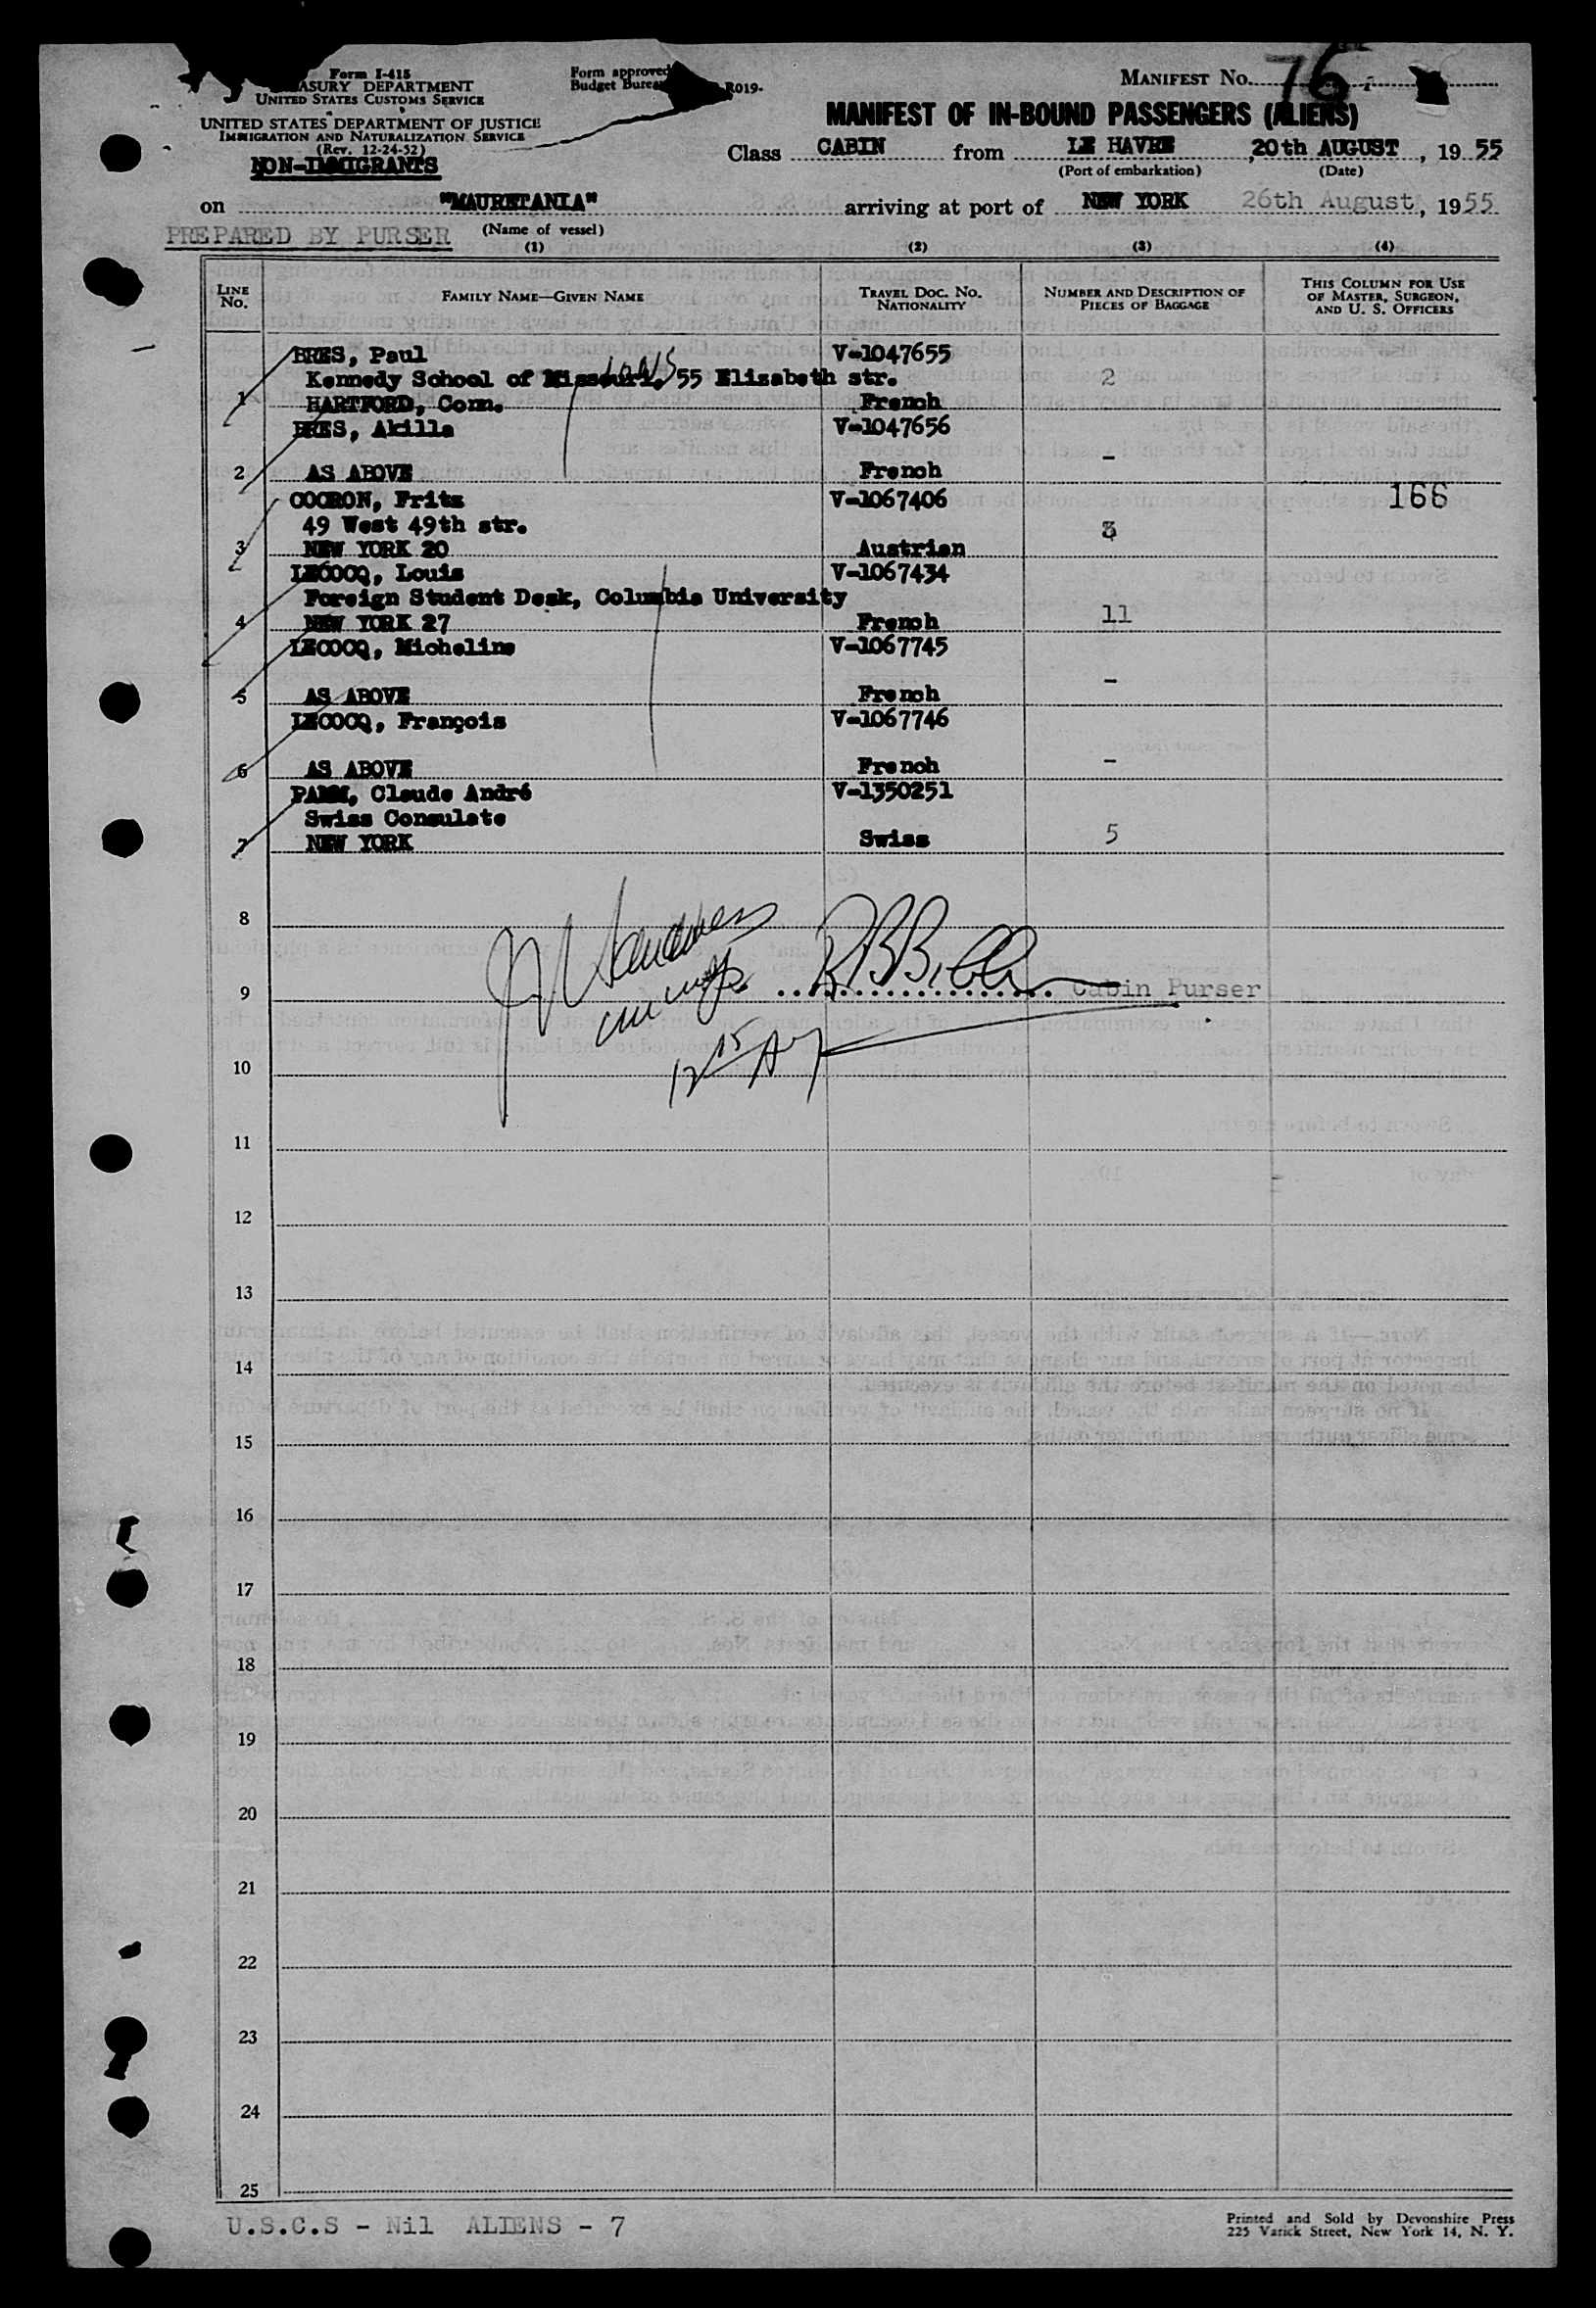 Form I-415
TREASURY DEPARTMENT
UNITED STATES CUSTOMS SERVICE
UNITED STATES DEPARTMENT OF JUSTICE
IMMIGRATION AND NATURALIZATION SERVICE
(Rev. 12-24-52)
NON-IMMIGRANTS
Form approved
Budget Bureau R019-
MANIFEST NO. 76
MANIFEST OF IN-BOUND PASSENGERS (ALIENS)
Class CABIN from LE HAVRE, 20th AUGUST, 1955
(Port of embarkation) (Date)
on "MAURETANIA" arriving at port of NEW YORK 26th August, 1955
PREPARED BY PURSER (Name of vessel)
(1) (2) (3) (4)
LINE NO. FAMILY NAME—GIVEN NAME TRAVEL DOC. NO. NATIONALITY NUMBER AND DESCRIPTION OF PIECES OF BAGGAGE THIS COLUMN FOR USE OF MASTER, SURGEON, AND U. S. OFFICERS
BRES, Paul V-1047655
Kennedy School of 55 Elizabeth str. 2
1 HARTFORD, Conn. French
BRES, Akilla V-1047656
2 AS ABOVE French -
COCRON, Fritz V-1067406 166
49 West 49th str. 3
3 NEW YORK 20 Austrian
LECOCQ, Louis V-1067434
Foreign Student Desk, Columbia University
4 NEW YORK 27 French 11
LECOCQ, Micheline V-1067745
5 AS ABOVE French -
LECOCQ, François V-1067746
6 AS ABOVE French -
PAMM, Claude André V-1350251
Swiss Consulate
7 NEW YORK Swiss 5
8
9 Cabin Purser
10
11
12
13
14
15
16
17
18
19
20
21
22
23
24
25
U.S.C.S - Nil ALIENS - 7
Printed and Sold by Devonshire Press
225 Varick Street, New York 14, N. Y.